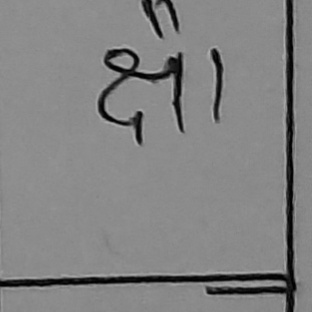 क्ष।